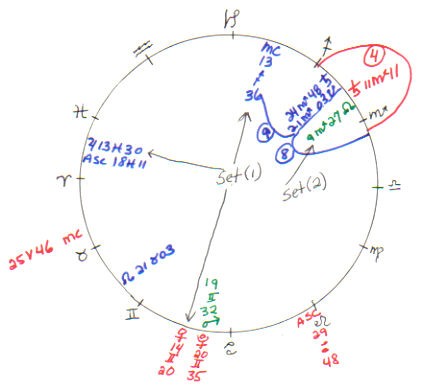 ♑
♐
MC
13
♐
36
④
24♏48 ♄
21♏03 ☋
♄ 11♏11
9♏27 ☊
♏
⑨
⑧
♒
♓
♃ 13♓30
Asc 18♓11
♈
Set(1)
Set(2)
♎
25♈46 MC
♉
☊ 21♉03
♍
19
♊
32
♂
♊
♋
♀
14
♊
20
♀
20
♊
35
ASC
♌
29
♌
48